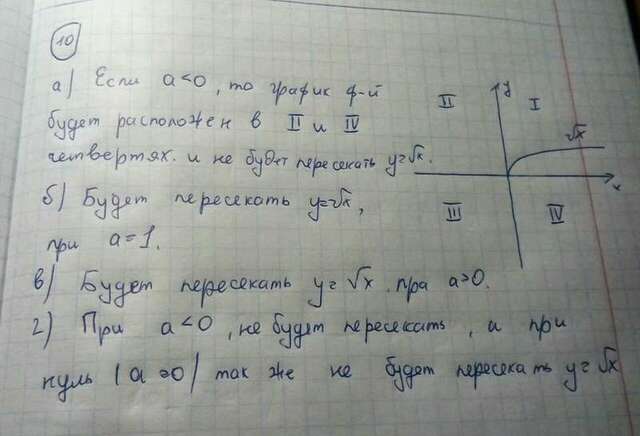 10
а) Если a<0, то график ф-й
будет расположен в II и IV
четвертях. и не будет пересекать y=√x.
б) Будет пересекать y=√x,
при a=1.
в) Будет пересекать y=√x. при a>0.
г) При a<0, не будет пересекать, а при
нуль (a=0) так же не будет пересекать y=√x
y
II
I
√x
x
III
IV